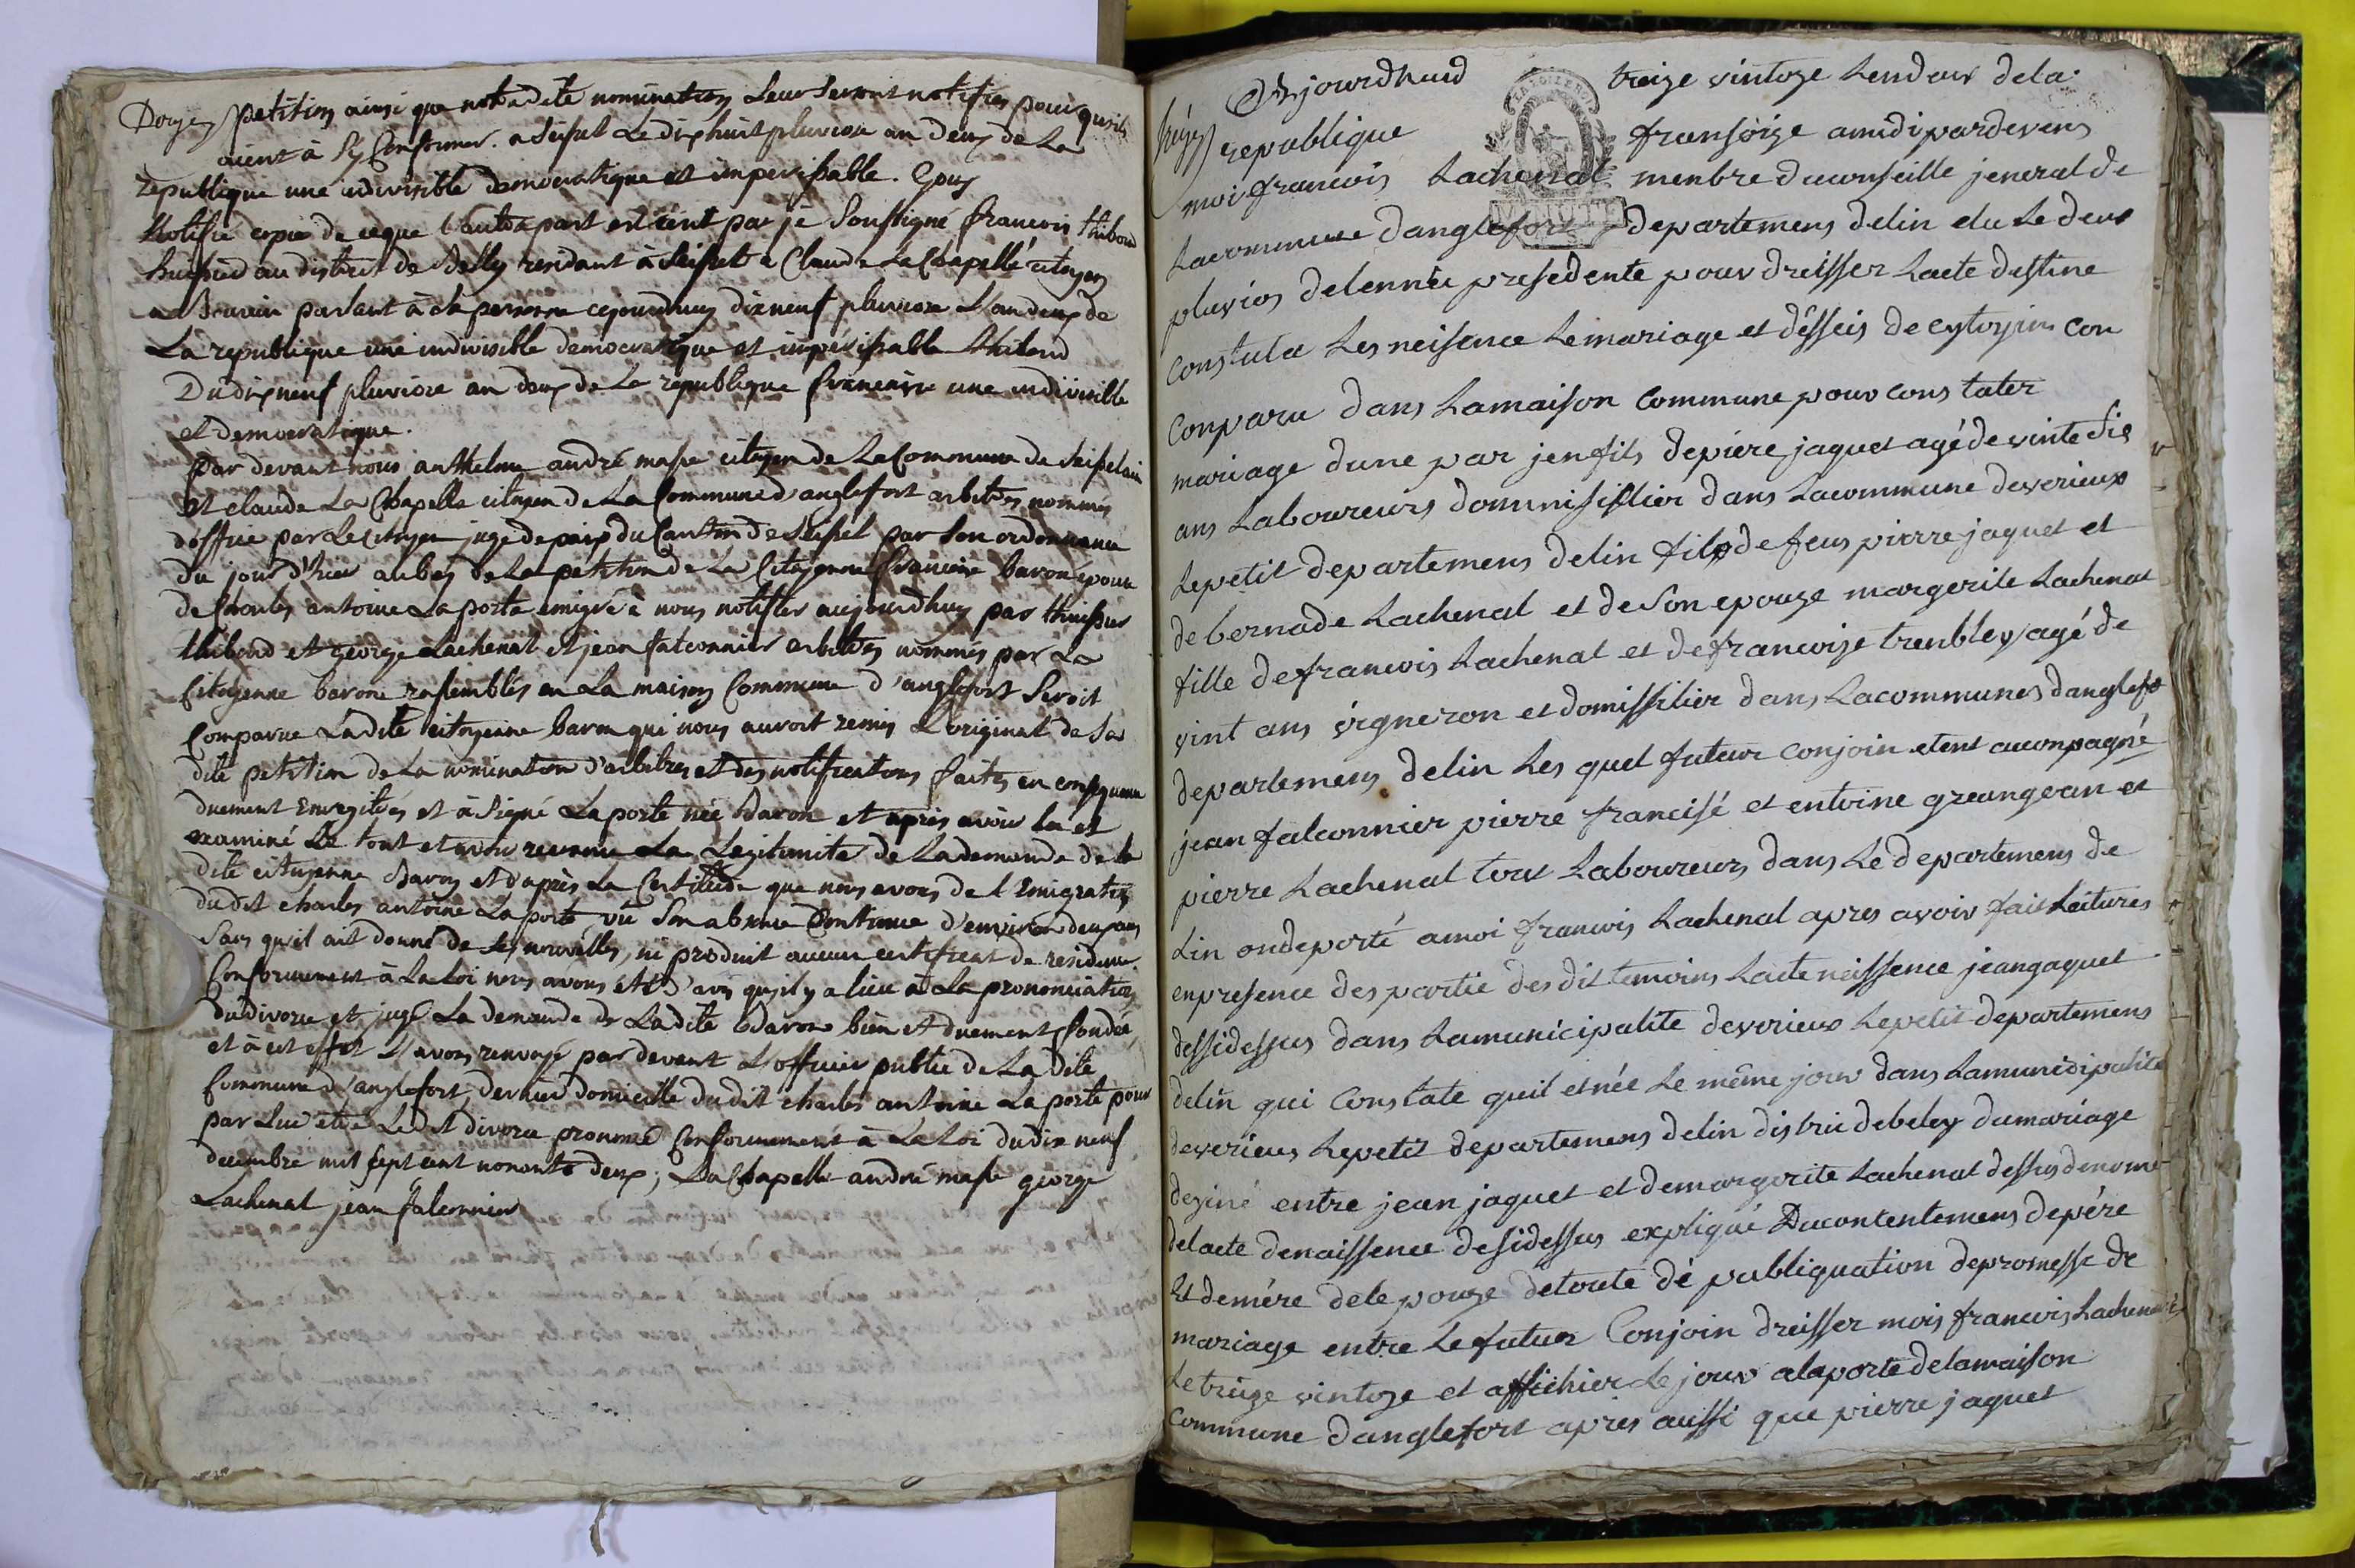 Douze petition ainsi que notredite nomination Leur Seront notifiés pour quils
aient à Sy Conformer. a Seissel Le dix huit pluviose an deux de La
republique une indivisible democratique et imperissable. Gouy
Notifié copie de ceque l'autre part est écrit par je Soussigné francois thiboud
huissier au district de Belly residant à Seissel a Claude La Chapelle citoyen
a parlant à Sa personne cejourdhuy dixneuf pluviose L'an deux de
La republique une indivisible democratique et impérissable thiboud
Du dix neuf pluviose an deux de La republique francaise une indivisible
et democratique.
par devant nous anthelme andré masse citoyen de La Commune de Seissel ain
et claude La Chapelle citoyen de La Commune d'anglefort arbitres nommés
d'office par Le Citoyen juge de paix du Canton de Seissel par Son ordonnance
du jour d'hier aubas de La petition de La Citoyenne francoise baron épouse
de Charles antoine Laporte émigré à nous notifier aujourdhuy par Lhuissier
thiboud et george Lachenal et jean falconnier arbitres nommés par La
Citoyenne baron rassemblés en La maison Commune d'anglefort Seroit
Comparue Ladite citoyenne baron qui nous auroit remis L'original de Sa
dite petition de La nomination d'arbitres et des notifications faites en consequence
duement Enregitrées et à Signé Laporte née Baron et après avoir lu et
examiné Le tout et avoir reconnu La Legitimité de La demande de la
dite citoyenne Baron et d'après La Certitude que nous avons de l'Emigration
dudit charles antoine Laporte vû Son absence Continue d'environ deux ans
Sans qu'il ait donné de Ses nouvelles, ni produit aucun certificat de residence
Conformement à La Loi nous avons été d'avis qu'il y a lieu à La prononciation
du divorce et jugé La demande de Ladite Baron bien et duement fondée,
et à cet effet L'avons renvoyé par devant L'officier public de La dite
Commune d'anglefort, dernier domicille dudit charles antoine Laporte pour
par Lui etre Ledit divorce prononcé Conformement à La Loi du dix neuf
decembre mil sept cent nonante deux; La Chapelle andré masse george
Lachenal jean falconnier
aujourdhuid treize vintoze Lendeux dela
republique fransoize amidi pardevens
moi francois Lachenal menbre duconseille jeneral de
Lacommune danglefort departemens delin elu Le deux
pluvios delennée presedente pour dreisser Lacte destine
constula Les neisence Lemariage et désseis de cytoyin con
conparu dans Lamaison commune pour cons tater
mariage dune par jen fils depiere jaquet agé de vinte sis
ans Laboureurs dommisillier dans Lacommune deverieux
Lepetit departemens delin fils defeus pierre jaquet et
de bernade Lachenal et de Son epouze margerite Lachenal
fille defrancois Lachenal et defrancoize trenbley agé de
vint ans vigneron et domissilier dans Lacommunes danglefo
departemens delin Les quel futeur conjoin etent acconpagné
jean falconnier pierre francisé et entoine greangean et
pierre Lachenal tout Laboureurs dans Le departemens de
Lin ondeporté amoi francois Lachenal apres avoir fait Leitures
enpresence des partie des dit temoins Lacte neissence jeangaquet
dessidessus dans Lamunicipalite deverieux Lepetit departemens
delin qui constate queil etnée Le même jour dans Lamunicipalite
deverieux Lepetit departemens delin distric debeley dumariage
deziné entre jean jaquet et demargerite Lachenal dessus denome
delacte denaissence desidessus expliqué Ducontentemens depére
Et demére dele pouze detoute dé publiquation depromesse de
mariage entre Lefutur Conjoin dreisser mois francois Lachenal
Letreize vintoze et affichier Le jour alaporte delamaison
commune danglefort apres aussi que pierre jaquet